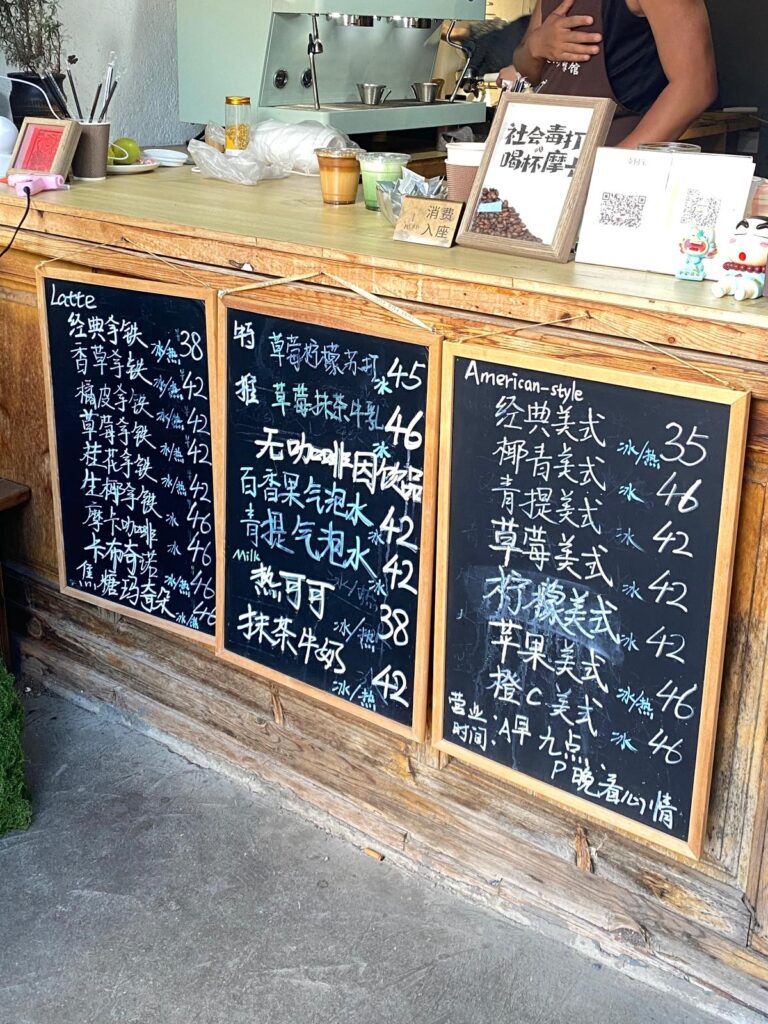 社会毒打
喝杯摩卡
消费
入座
Latte
经典拿铁 冰/热 38
香草拿铁 冰/热 42
橘皮拿铁 冰/热 42
草莓拿铁 冰/热 42
桂花拿铁 冰/热 42
生椰拿铁 冰 46
摩卡咖啡 冰 46
卡布奇诺 冰/热 46
焦糖玛奇朵 冰/热 46
特 草莓柠檬苏打 冰 45
推 草莓抹茶牛乳 冰 46
无咖啡因饮品
百香果气泡水 冰 42
青提气泡水 冰 42
Milk
热可可 冰/热 38
抹茶牛奶 冰/热 42
American-style
经典美式 冰/热 35
椰青美式 冰 46
青提美式 冰 42
草莓美式 冰 42
柠檬美式 冰 42
苹果美式 冰/热 46
橙C美式 冰 46
营业时间：A早九点、
P晚看心情